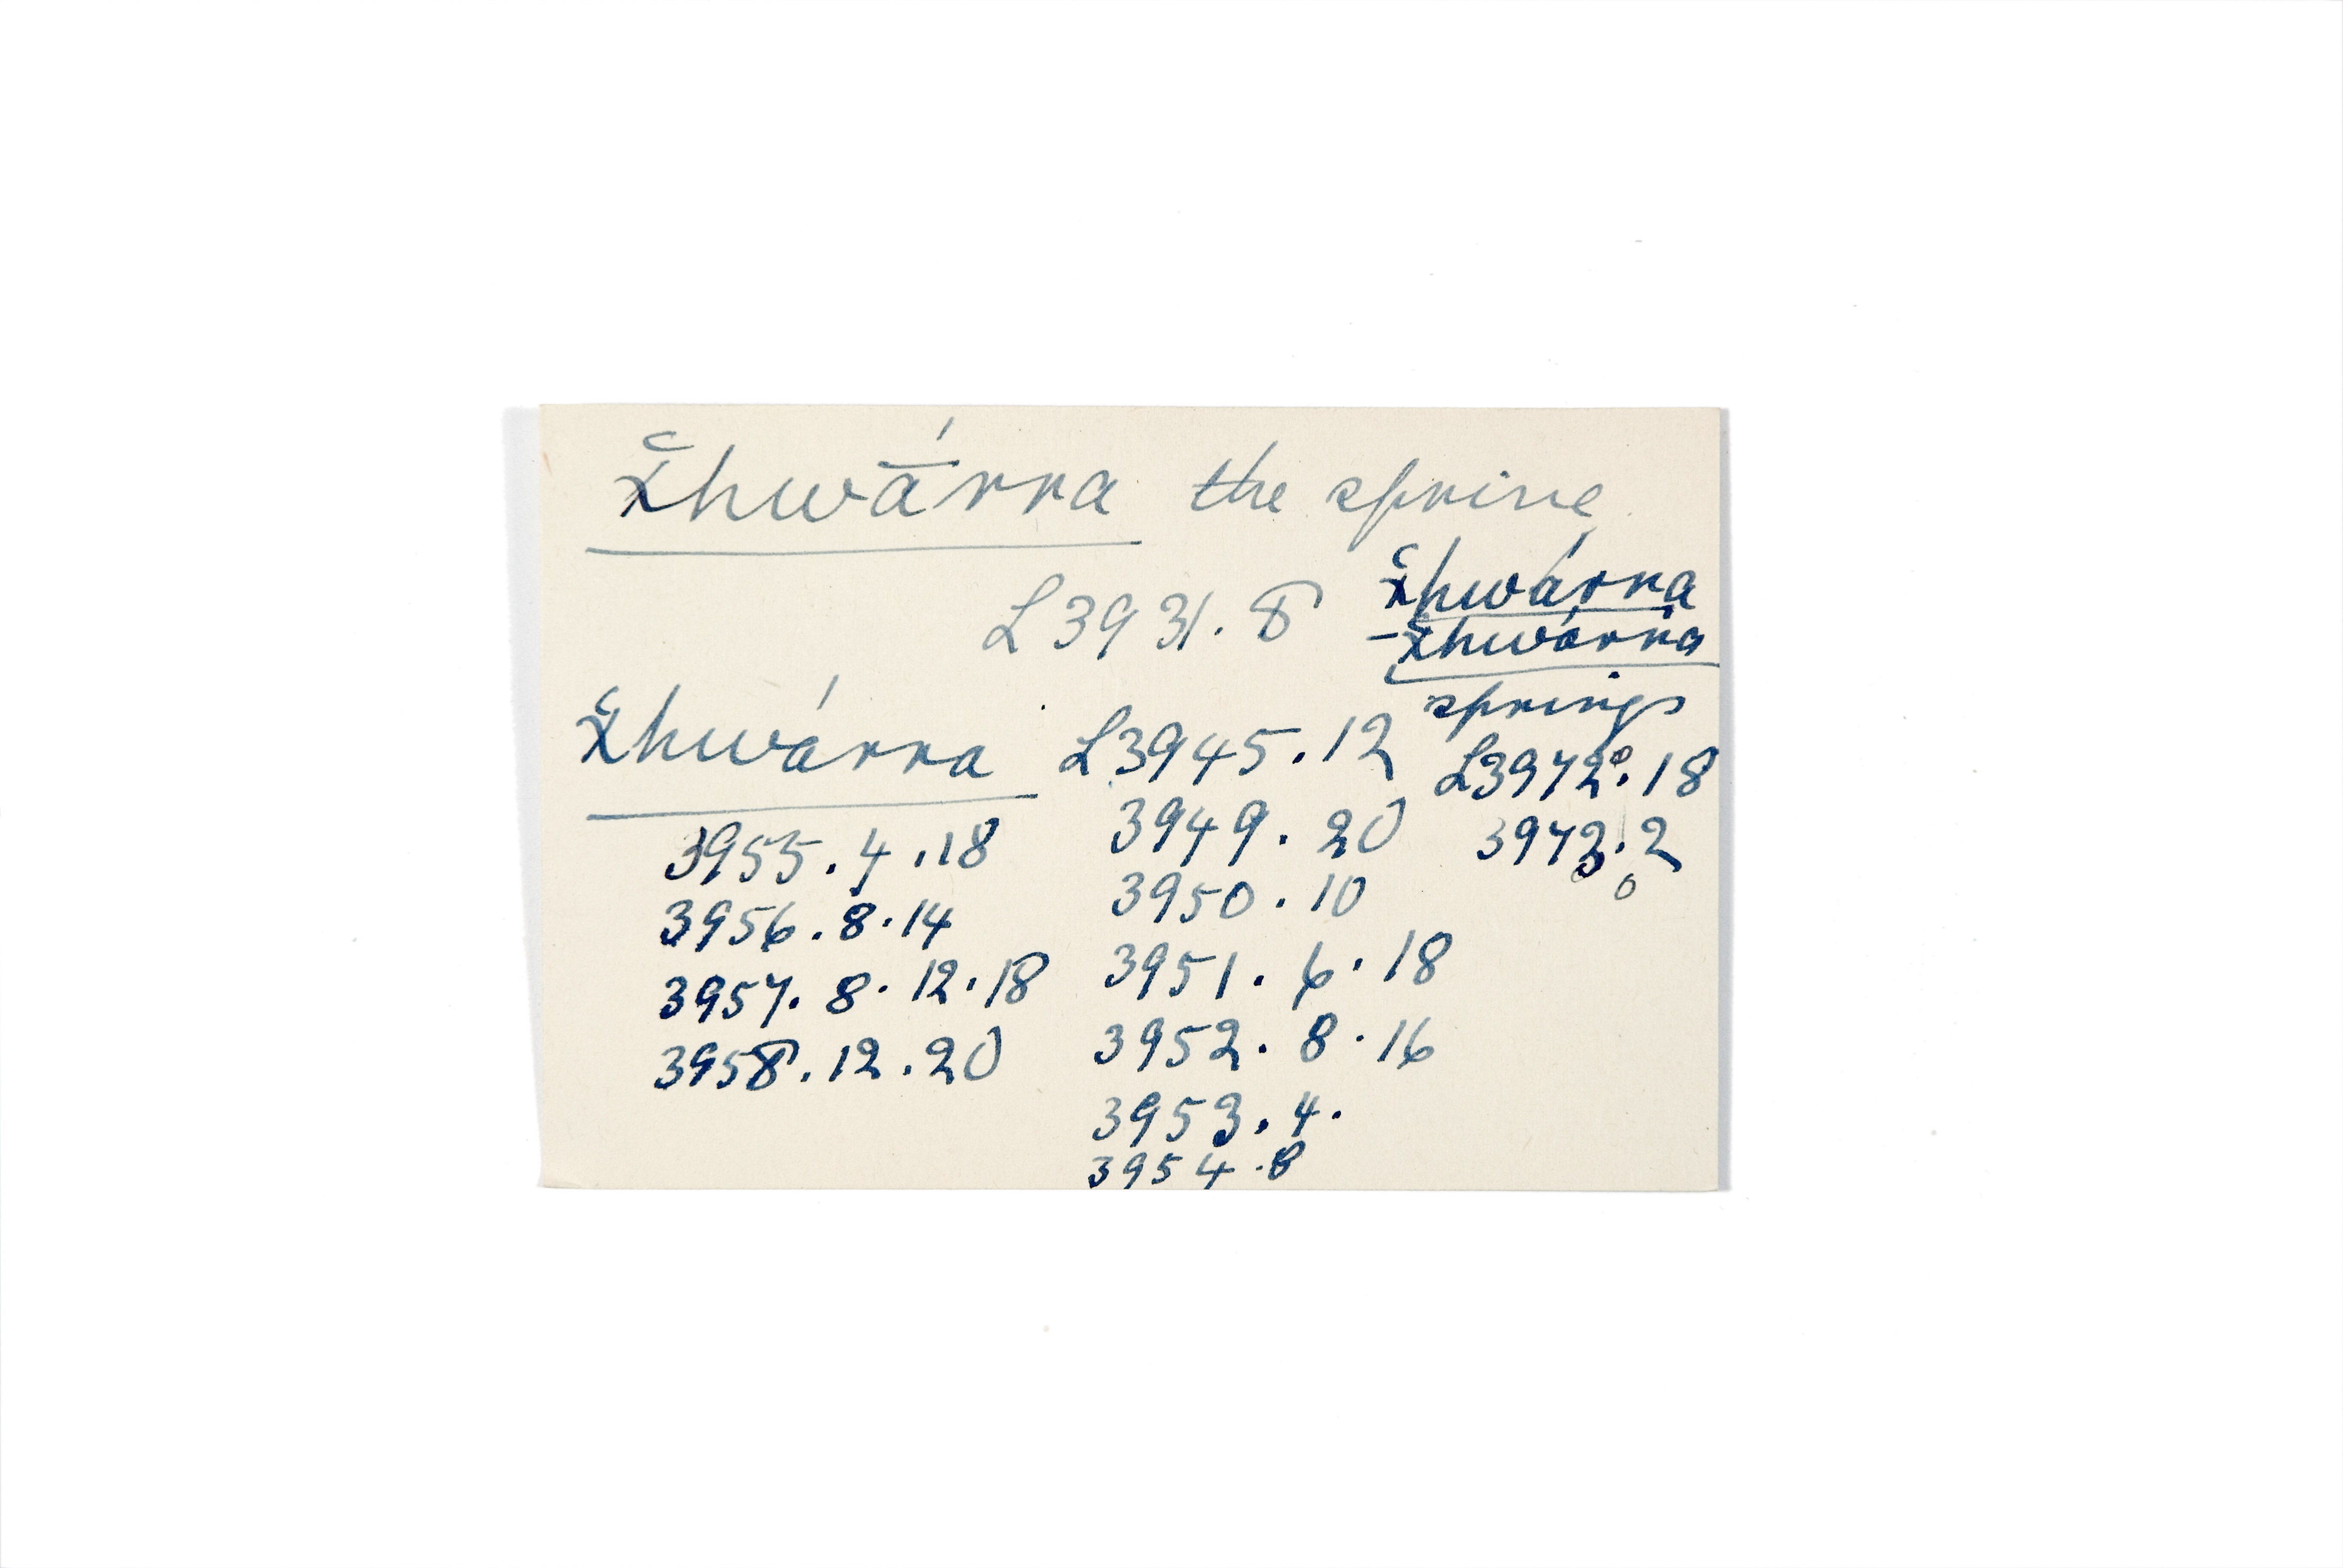 x̆hwā́rra the spring
L3931.8
x̆hwárra
-x̆hwárra
springs
L3972.18
3973.2
x̆hwárra L3945.12
3949.20
3950.10
3951.6.18
3952.8.16
3953.4.
3954.8
3955.4.18
3956.8.14
3957.8.12.18
3958.12.20